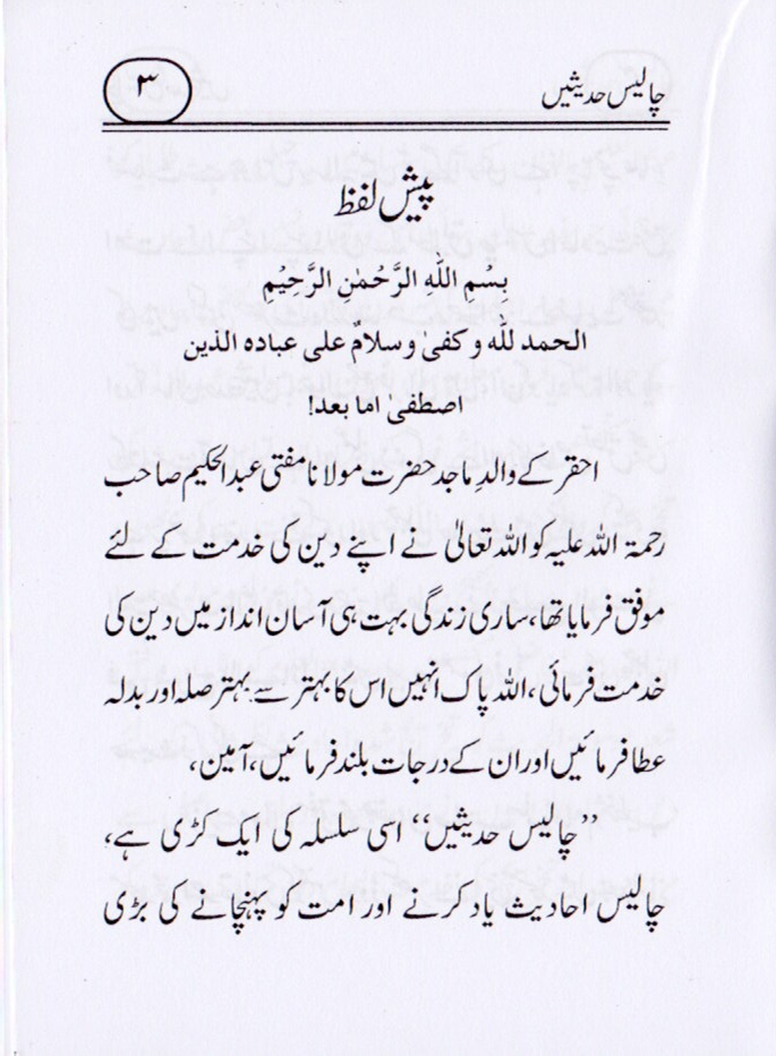 چالیس حدیثیں ۳
پیش لفظ
بِسْمِ اللهِ الرَّحْمٰنِ الرَّحِيْمِ
الحمد للّٰه و کفیٰ وسلامٌ علی عبادہ الذین
اصطفیٰ اما بعد!
احقر کے والدِ ماجد حضرت مولانا مفتی عبدالحکیم صاحب
رحمۃ اللہ علیہ کو اللہ تعالیٰ نے اپنے دین کی خدمت کے لئے
موفق فرمایا تھا، ساری زندگی بہت ہی آسان انداز میں دین کی
خدمت فرمائی، اللہ پاک انہیں اس کا بہتر سے بہتر صلہ اور بدلہ
عطا فرمائیں اور ان کے درجات بلند فرمائیں، آمین،
’’چالیس حدیثیں‘‘ اسی سلسلہ کی ایک کڑی ہے،
چالیس احادیث یاد کرنے اور امت کو پہنچانے کی بڑی